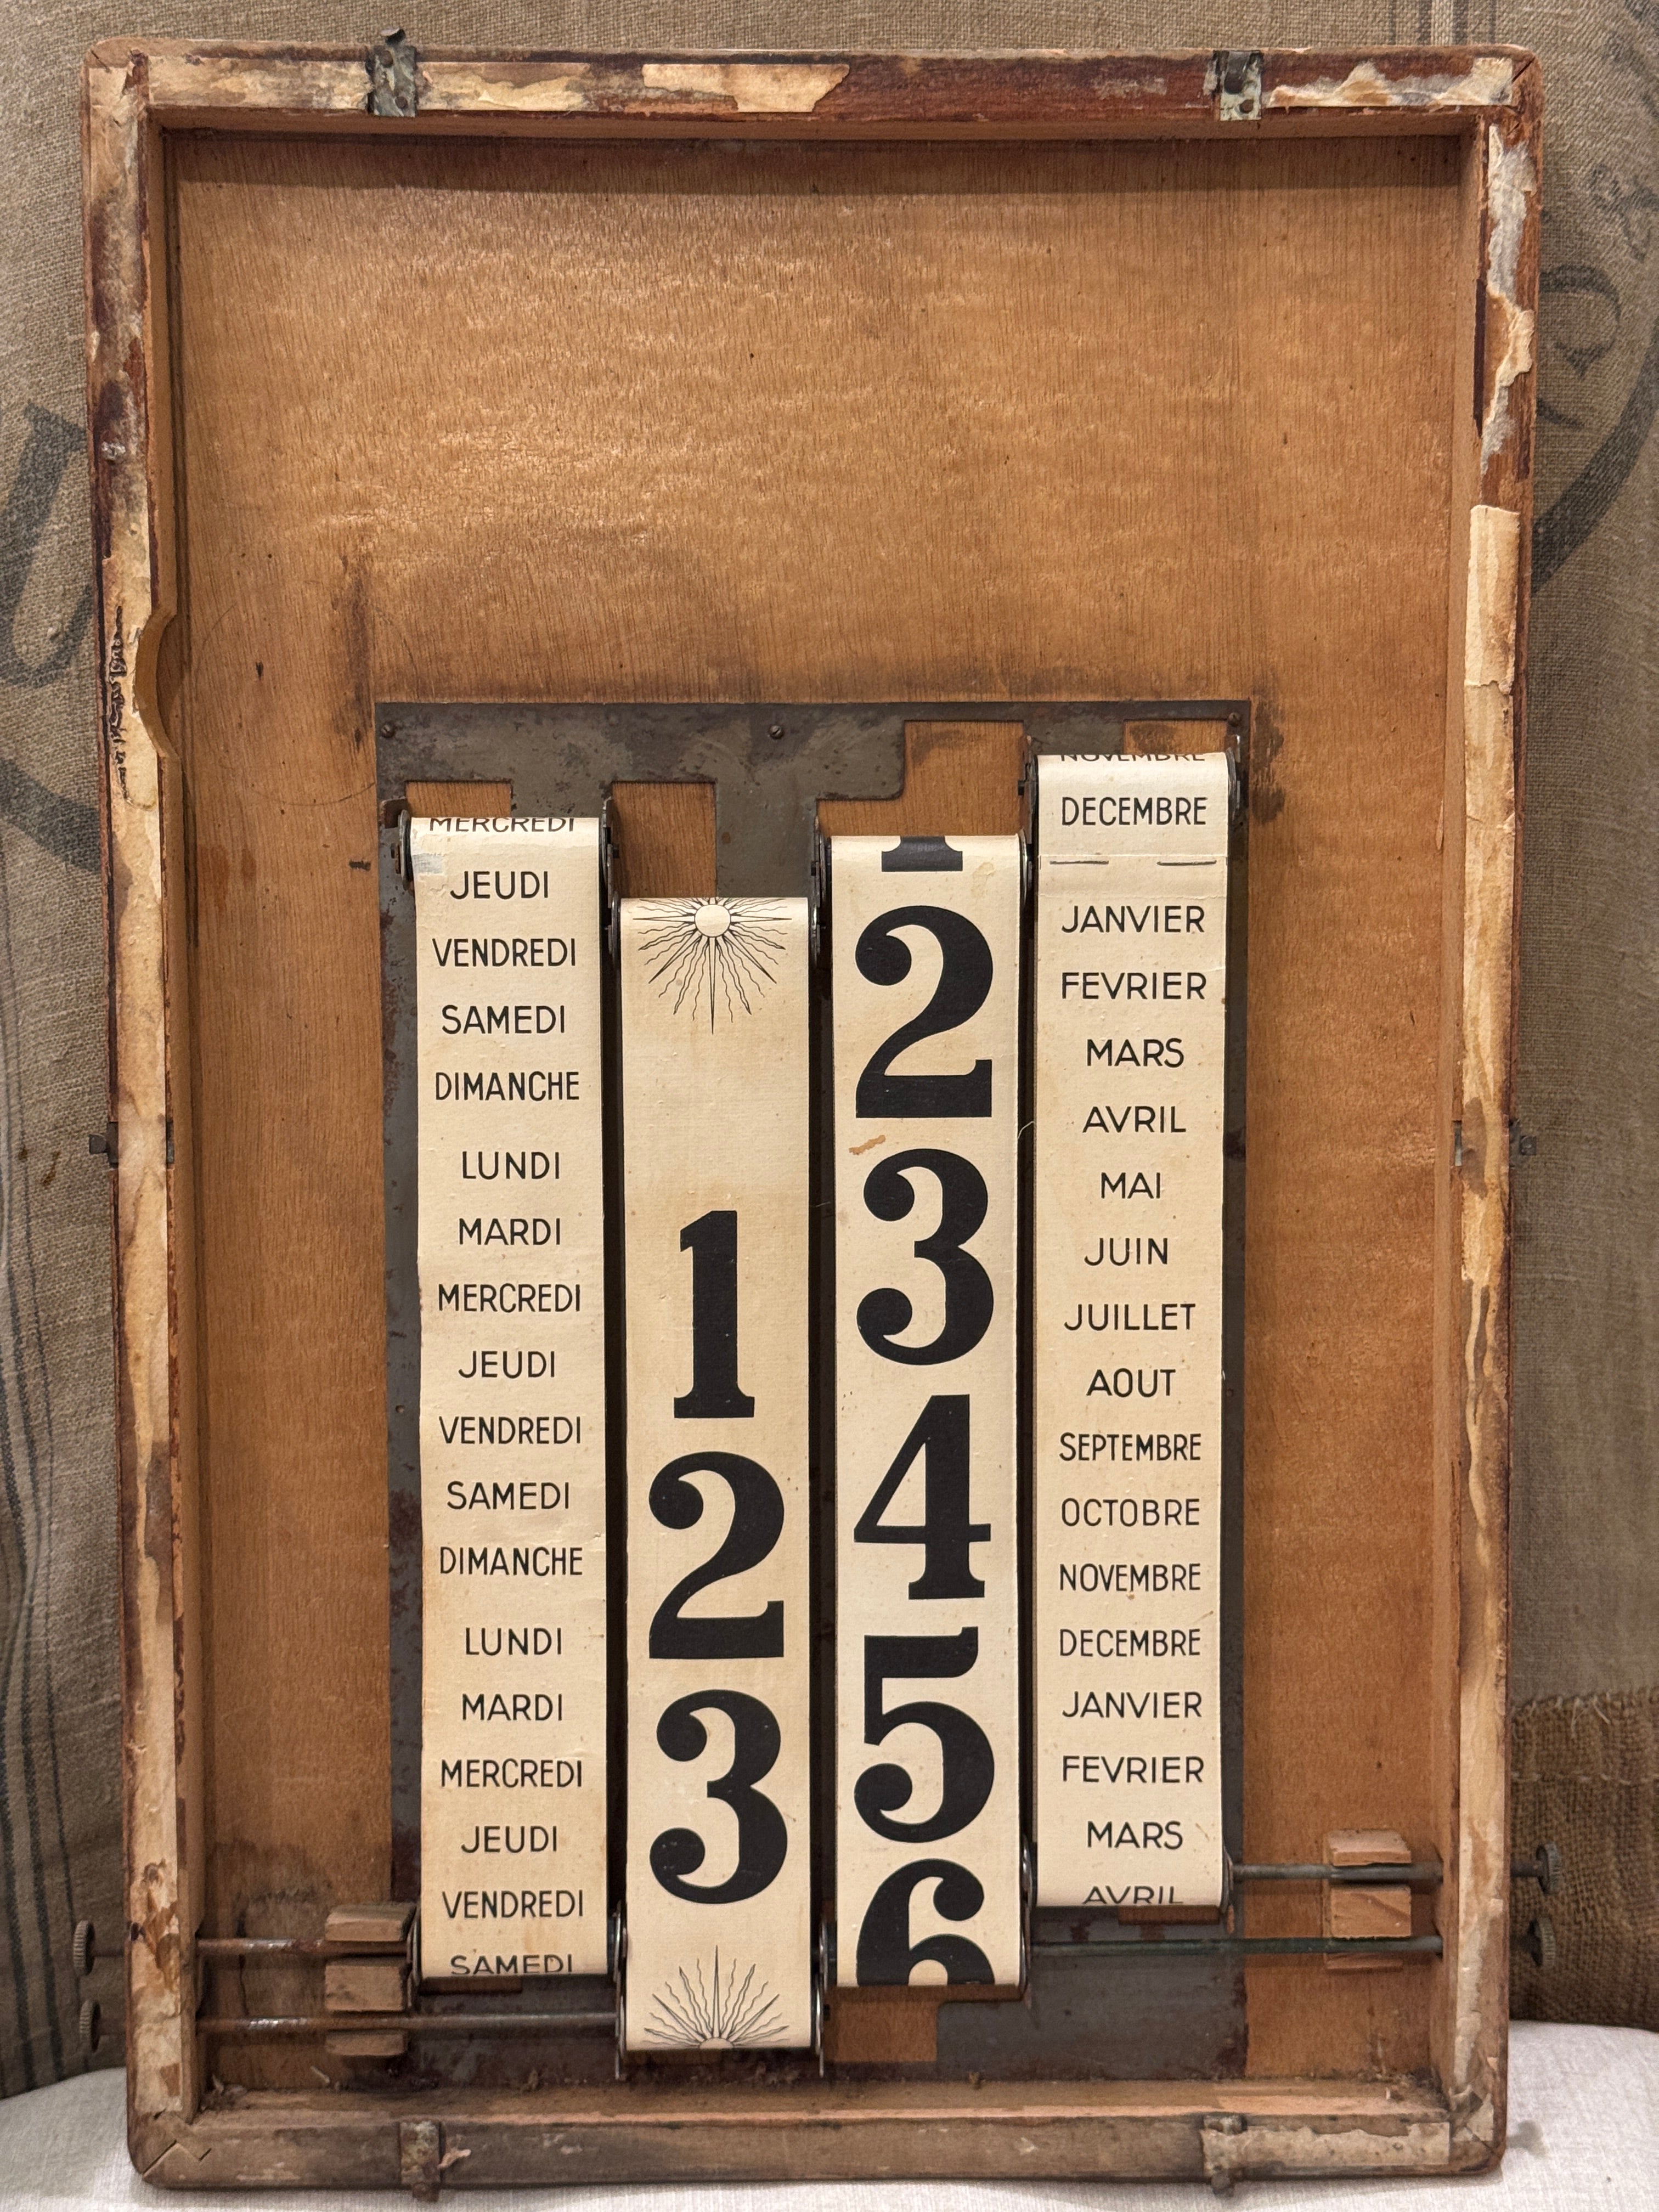 MERCREDI
JEUDI
VENDREDI
SAMEDI
DIMANCHE
LUNDI
MARDI
MERCREDI
JEUDI
VENDREDI
SAMEDI
DIMANCHE
LUNDI
MARDI
MERCREDI
JEUDI
VENDREDI
SAMEDI
1
2
3
1
2
3
4
5
6
NOVEMBRE
DECEMBRE
JANVIER
FEVRIER
MARS
AVRIL
MAI
JUIN
JUILLET
AOUT
SEPTEMBRE
OCTOBRE
NOVEMBRE
DECEMBRE
JANVIER
FEVRIER
MARS
AVRIL